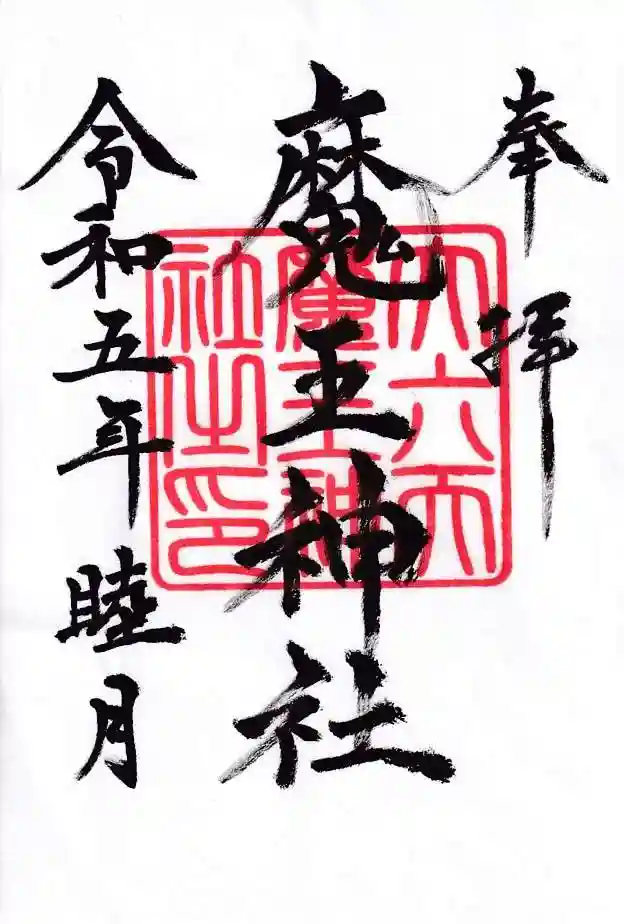 奉拝
魔王神社
令和五年睦月
大六天
魔王神
社之印